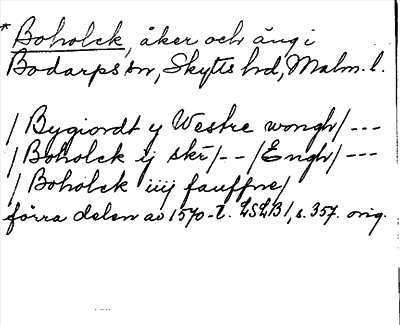 * Boholck, åker och äng i
Bodarps sn, Skytts hd, Malm. l.
/ Bygiordt y Westre wongh/ ---
/ Boholck ij skr/ -- /Engh/ ---
/ Boholck iiij fauffne/
förra delen av 1570-t. LSLB1, s. 357. orig.